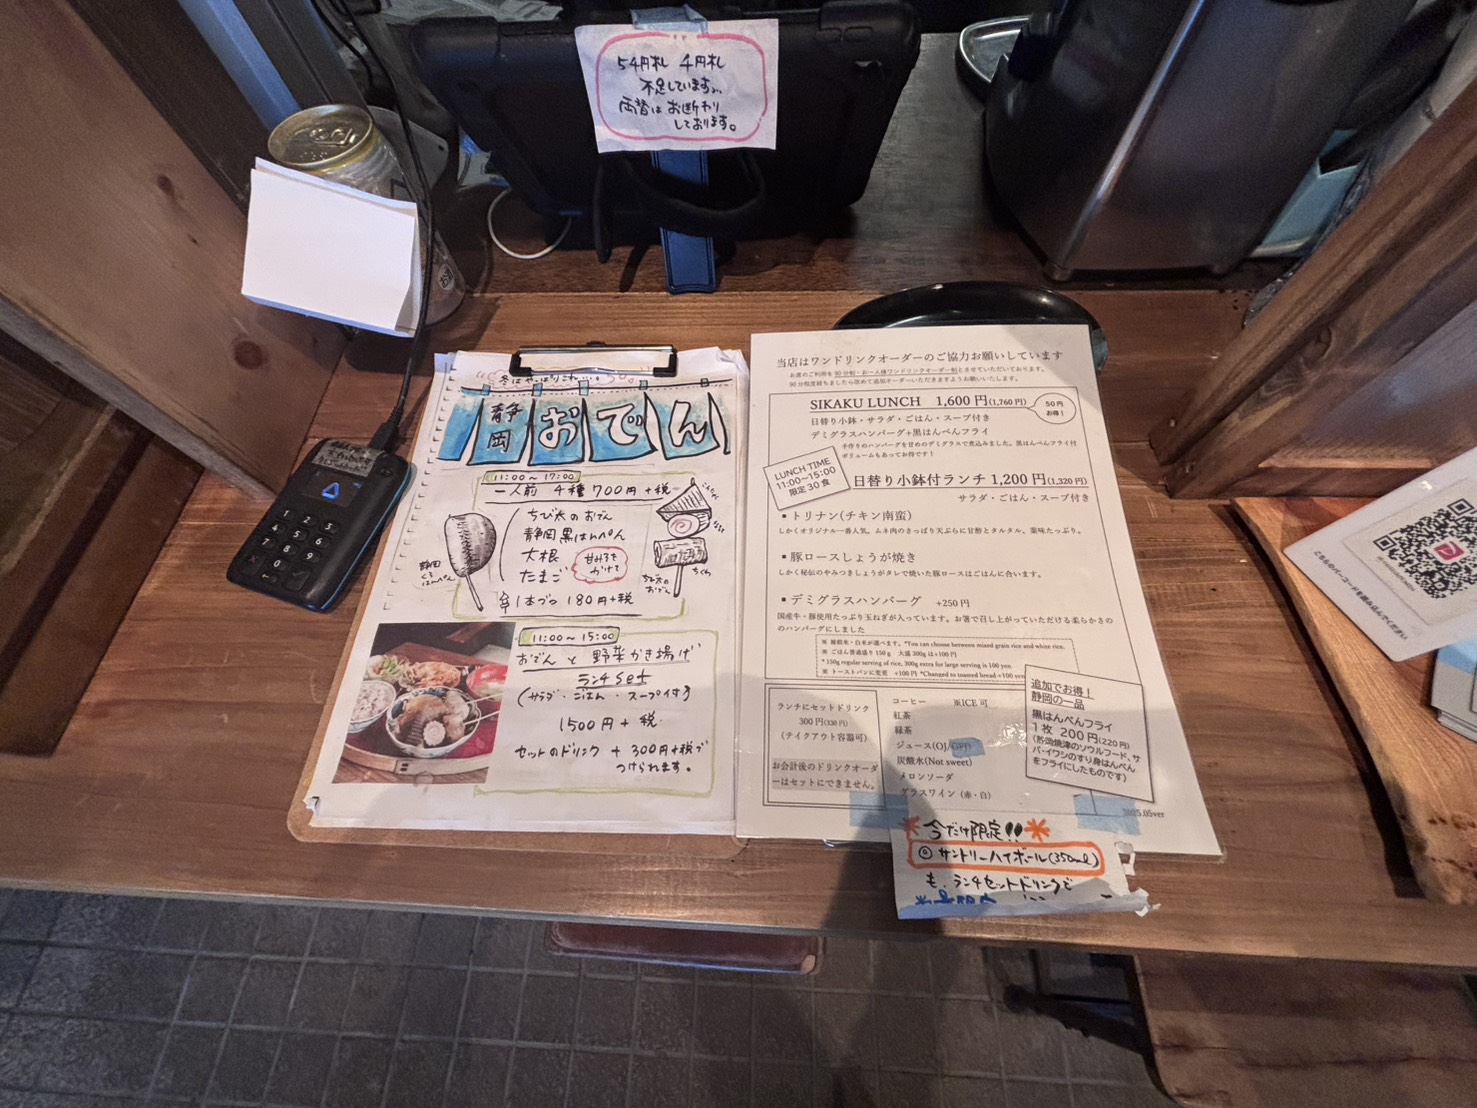 5千円札 千円札
不足しています。
両替はお断わり
しております。
冬はやっぱりこれ…。
静岡
おでん
11:00～17:00
一人前 4種 700円+税
ちび太のおでん
静岡黒はんぺん
大根
たまご
甘みそを
かけて
各1本づつ 180円+税
静岡
くろ
はんぺん
ちくわ
ちび太の
おでん
11:00～15:00
おでん と 野菜かき揚げ
ランチset
(サラダ・ごはん・スープ付き)
1500円+税
セットのドリンク +300円+税で
つけられます。
当店はワンドリンクオーダーのご協力お願いしています
お席のご利用を90分制・お一人様ワンドリンクオーダー制とさせていただいております。
90分程度経ちましたら改めて追加オーダーいただきますようお願いいたします。
SIKAKU LUNCH 1,600円(1,760円)
50円
お得！
日替り小鉢・サラダ・ごはん・スープ付き
デミグラスハンバーグ+黒はんぺんフライ
手作りのハンバーグを甘めのデミグラスで煮込みました。黒はんぺんフライ付
ボリュームもあってお得です！
LUNCH TIME
11:00~15:00
限定30食
日替り小鉢付ランチ 1,200円(1,320円)
サラダ・ごはん・スープ付き
▪トリナン(チキン南蛮)
しかくオリジナル一番人気。ムネ肉のさっぱり天ぷらに甘酢とタルタル、薬味たっぷり。
▪豚ロースしょうが焼き
しかく秘伝のやみつきしょうがタレで焼いた豚ロースはごはんに合います。
▪デミグラスハンバーグ +250円
国産牛・豚使用たっぷり玉ねぎが入っています。お箸で召し上がっていただける柔らかさの
のハンバーグにしました
※ 雑穀米・白米が選べます。*You can choose between mixed grain rice and white rice.
※ ごはん普通盛り 150g 大盛 300gは+100円
*150g regular serving of rice, 300g extra for large serving is 100 yen.
※ トーストパンに変更 +100円 *Changed to toasted bread +100 yen
ランチにセットドリンク
300円(330円)
(テイクアウト容器可)
お会計後のドリンクオーダ
ーはセットにできません。
コーヒー ※ICE可
紅茶
緑茶
ジュース(OJ/
炭酸水(Not sweet)
メロンソーダ
グラスワイン（赤・白）
追加でお得！
静岡の一品
黒はんぺんフライ
1枚 200円(220円)
(静岡焼津のソウルフード、サ
バ・イワシのすり身はんぺん
をフライにしたものです)
2025.05ver
今だけ限定!!
◎サントリーハイボール(350ml)
も、ランチセットドリンクで
1 2 3
4 5 6
7 8 9
0
こちらのバーコードを読み込んでください